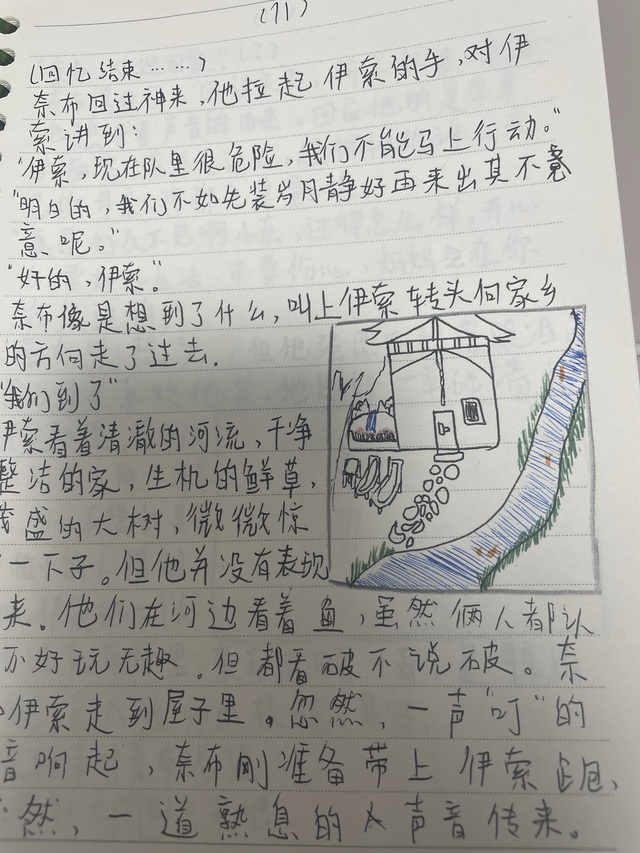 (71)
(回忆结束……)
奈布回过神来,他拉起伊索的手,对伊
索讲到:
"伊索,现在队里很危险,我们不能马上行动。"
"明白的,我们不如先装岁月静好再来出其不意
意呢。"
"好的,伊索。"
奈布像是想到了什么,叫上伊索转头向家乡
的方向走了过去.
"我们到了"
伊索看着清澈的河流,干净
整洁的家,生机的鲜草,
茂盛的大树,微微惊
一下子。但他并没有表现
来。他们在河边看着鱼,虽然俩人都认
不好玩无趣。但都看破不说破。奈
伊索走到屋子里。忽然,一声"叮"的
音响起,奈布刚准备带上伊索跑,
然,一道熟息的人声音传来。